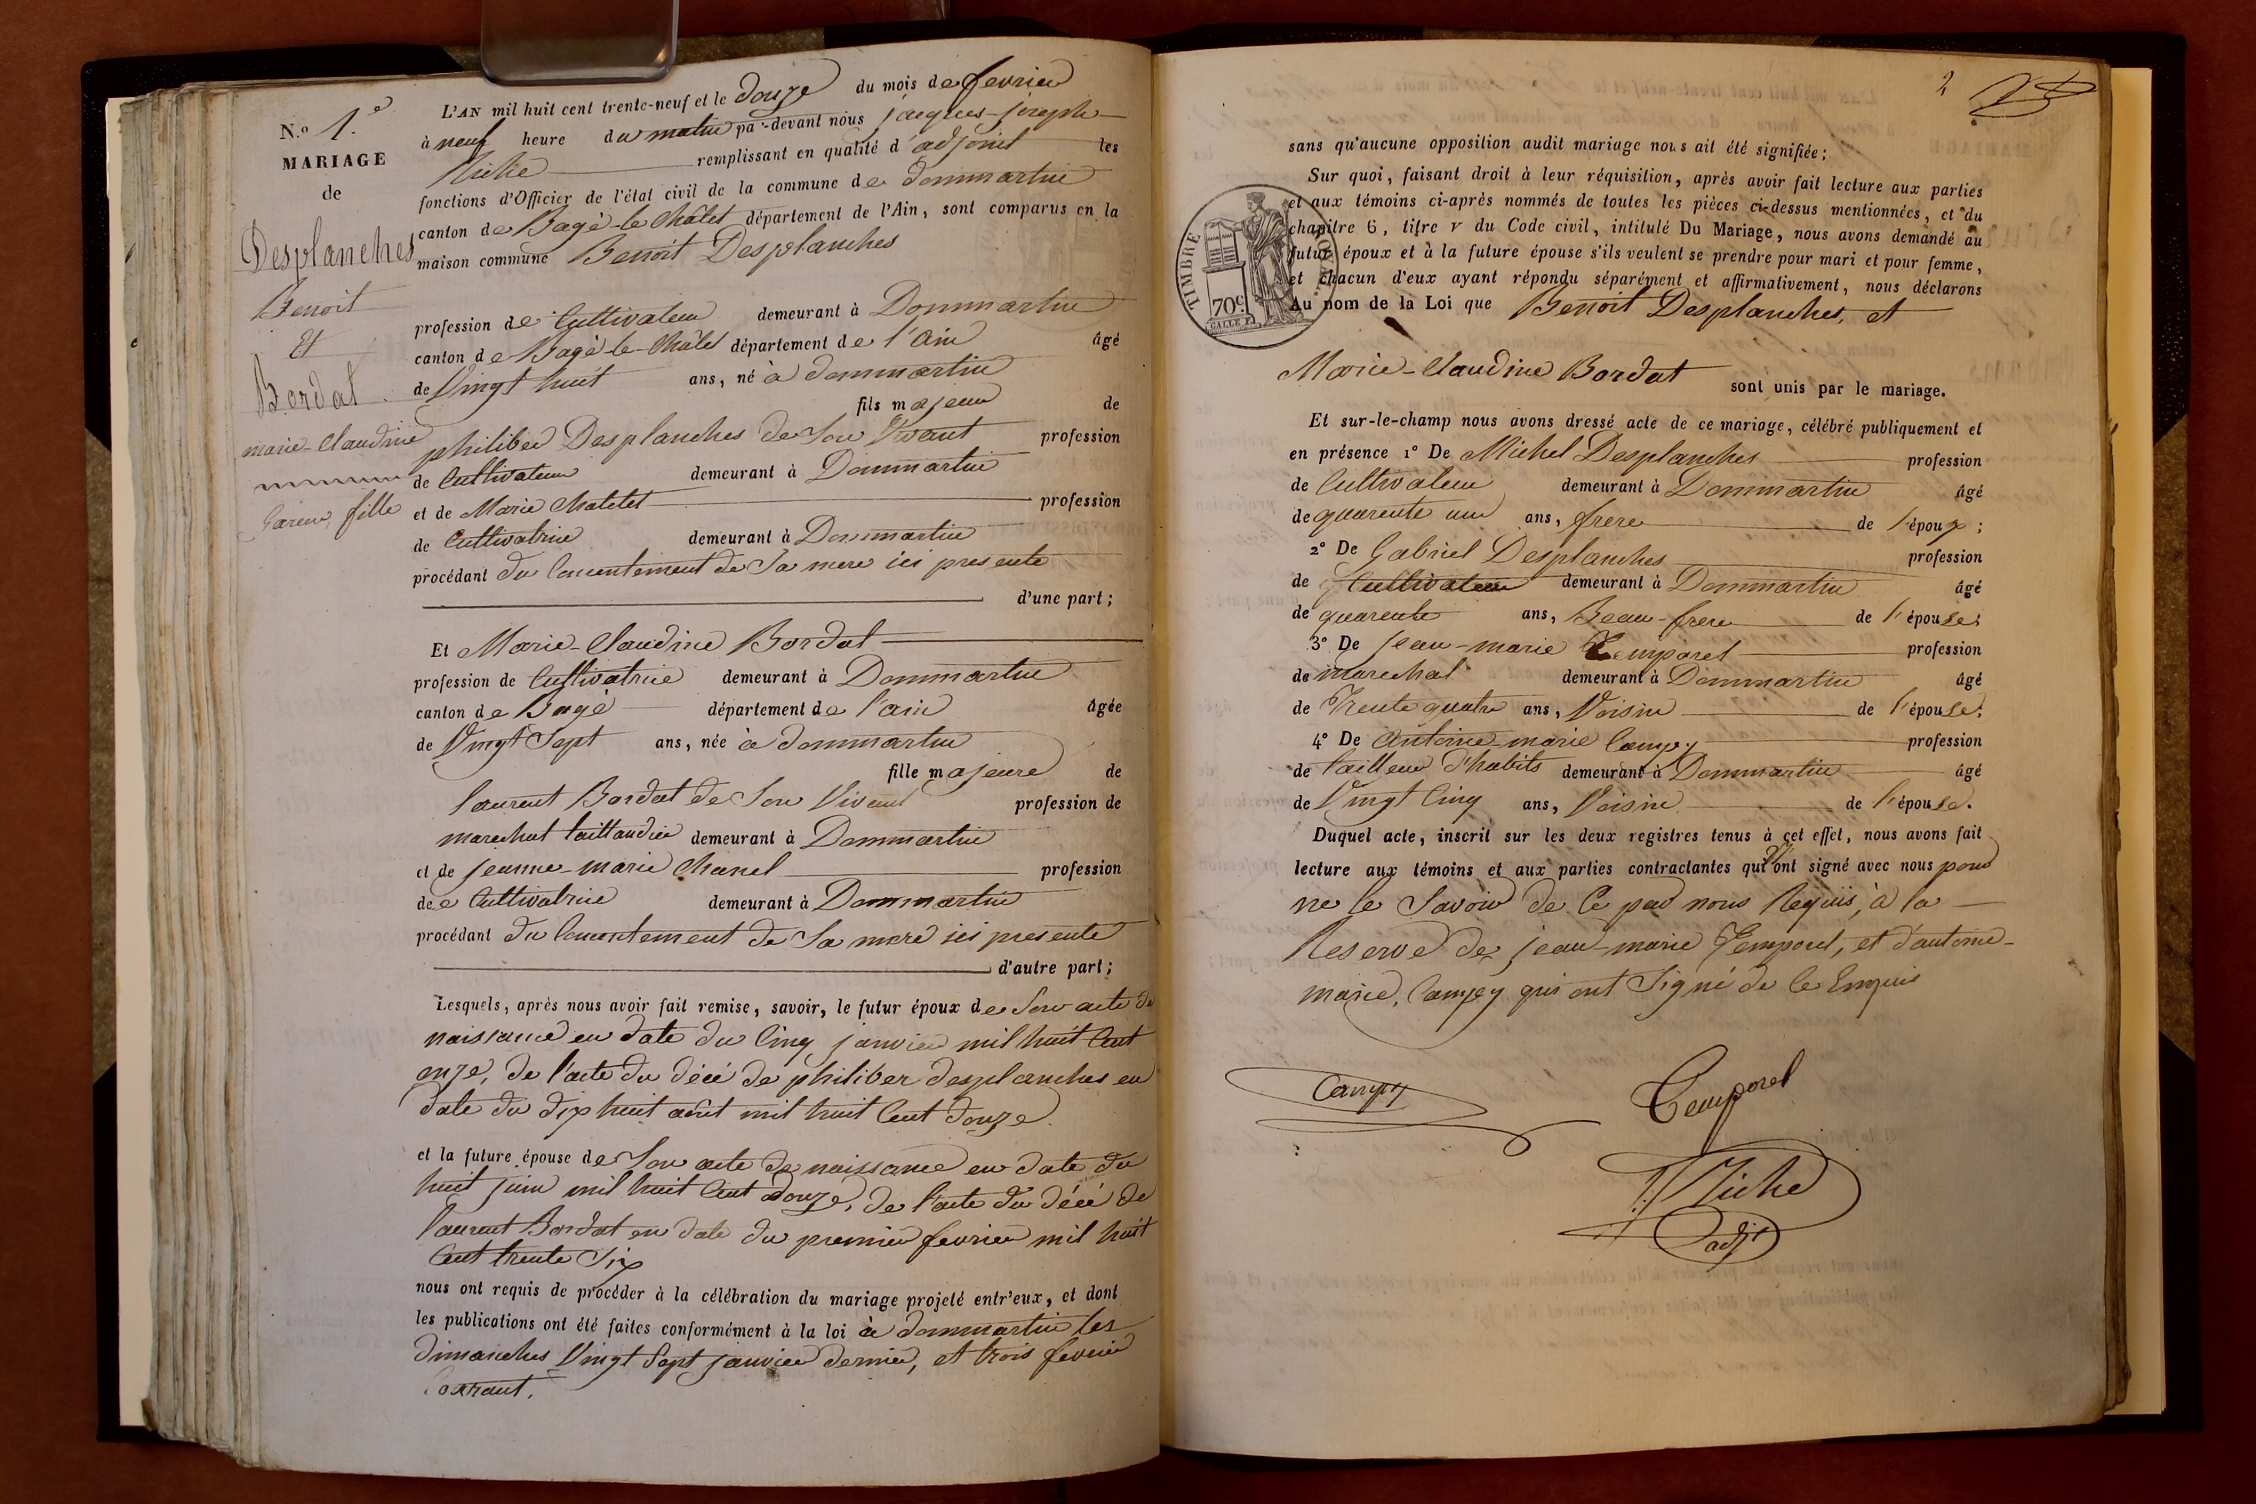 N.o 1.e
MARIAGE
de
Desplanches
Benoit
Et
Bordat
marie-Claudine
Garcon, fille
L'AN mil huit cent trente-neuf et le douze du mois de fevrier
à neuf heure du matin pa -devant nous jacques-joseph
Miche remplissant en qualité d'adjoint les
fonctions d'Officier de l'état civil de la commune de dommartin
canton de Bagé-le-Châtel département de l'Ain, sont comparus en la
maison commune Benoit Desplanches
profession de Cultivateur demeurant à Dommartin
canton de Bagé-le-Châtel département de l'ain âgé
de Vingt huit ans, né à dommartin
fils majeur de
philiber Desplanches de Son Vivant profession
de Cultivateur demeurant à Dommartin
et de Marie Chatelet profession
de Cultivatrice demeurant à Dommartin
procédant du Consentement de Sa mere ici presente
d'une part;
Et Marie-Claudine Bordat
profession de Cultivatrice demeurant à Dommartin
canton de Bagé département de l'ain âgée
de Vingt Sept ans, née à dommartin
fille majeure de
laurent Bordat de Son Vivant profession de
marechal taillandier demeurant à Dommartin
et de jeanne-marie Chanel profession
de Cultivatrice demeurant à Dommartin
procédant du Consentement de Sa mere ici presente
d'autre part;
Lesquels, après nous avoir fait remise, savoir, le futur époux de Son acte de
naissance en date du Cinq janvier mil huit Cent
onze, de l'acte du décé de philiber desplanches en
date du dix huit août mil huit Cent douze.
et la future épouse de Son acte de naissance en date du
huit juin mil huit Cent douze, de l'acte du décé de
laurent Bordat en date du premier fevrier mil huit
Cent trente Six
nous ont requis de procéder à la célébration du mariage projeté entr'eux, et dont
les publications ont été faites conformément à la loi à dommartin les
dimanches Vingt Sept janvier dernier, et trois fevrier
Courant.
2
sans qu'aucune opposition audit mariage nous ait été signifiée;
Sur quoi, faisant droit à leur réquisition, après avoir fait lecture aux parties
et aux témoins ci-après nommés de toutes les pièces ci-dessus mentionnées, et du
chapitre 6, titre v du Code civil, intitulé Du Mariage, nous avons demandé au
futur époux et à la future épouse s'ils veulent se prendre pour mari et pour femme,
et chacun d'eux ayant répondu séparément et affirmativement, nous déclarons
Au nom de la Loi que Benoit Desplanches, et
TIMBRE ROYAL
70c.
Marie-Claudine Bordat sont unis par le mariage.
Et sur-le-champ nous avons dressé acte de ce mariage, célébré publiquement et
en présence 1° De Michel Desplanches profession
de Cultivateur demeurant à Dommartin âgé
de quarente un ans, frere de l'époux;
2° De Gabriel Desplanches profession
de Cultivateur demeurant à Dommartin âgé
de quarente ans, Beau-frere de l'épouse;
3° De jean-marie Temporel profession
de marechal demeurant à Dommartin âgé
de Trente quatre ans, Voisin de l'épouse;
4° De antoine-marie Camyey profession
de tailleur d'habits demeurant à Dommartin âgé
de Vingt Cinq ans, Voisin de l'épouse.
Duquel acte, inscrit sur les deux registres tenus à cet effet, nous avons fait
lecture aux témoins et aux parties contractantes qui n'ont signé avec nous pour
ne le Savoir de Ce par nous Requis, à la
Reserve de jean-marie Temporel, et d'antoine-
marie, Camyey qui ont Signé de Ce Enquis
Temporel
Miche
adjt